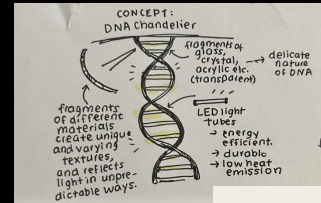 CONCEPT:
DNA Chandelier
fragments of
glass,
crystal,
acrylic etc.
(transparent)
→ delicate
nature
of DNA
fragments
of different
materials
create unique
and varying
textures,
and reflects
light in unpre-
dictable ways.
LED light
tubes
→ energy
efficient.
→ durable
→ low heat
emission